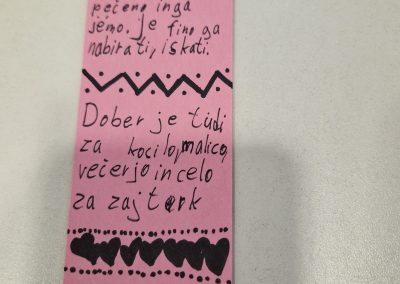 pečeno in ga
jemo. je fino ga
nabirati, iskati.
Dober je tudi
za kocilo, malico,
večerjo in celo
za zajterk